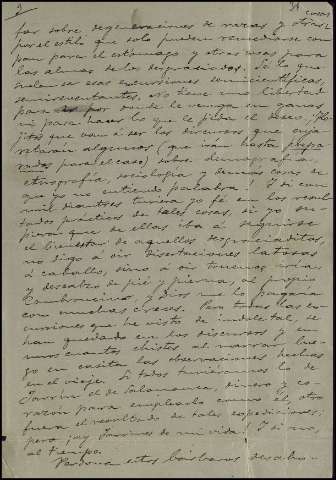 2
far sobre degeneraciones de razas y otras
por el estilo que solo pueden remediarse con
pan para el estómago y otras cosas para
las almas de los degenerados. Es lo que
suelen ser esas excursiones semicientíficas,
No tiene uno libertad
para ir por donde le venga en gana,
ni para hacer lo que le pida el deseo.
que van á ser los discursos que
algunos (que irán hasta prepa
rados para el caso) sobre demografía,
etnografía, sociología y demás cosas de
que yo no entiendo palabra! Y si con
mil diantres tuviera yo fé en los resul
tados prácticos de tales cosas, si yo su
piera que de ellas iba á seguirse
el bienestar de aquellos desgraciaditos,
no digo á oir disertaciones latosas
á caballo, sino á oir
y descalzo de pié y pierna, al propio
y Dios me lo pagara
con muchas creces. Pero todas las ex
cursiones que he visto de indole tal, se
han quedado en los discursos y en
unos cuantos chistes al narrar lue-
go en casita las observaciones hechas
en el viaje. Si todos tuviéramos lo de
el de Salamanca, dinero y co-
razón para emplearlo como él, otro
fuera el resultado de tales expediciones;
pero ¡ay de mi vida! Y si no,
al tiempo.
Perdona estos bárbaros desaho-